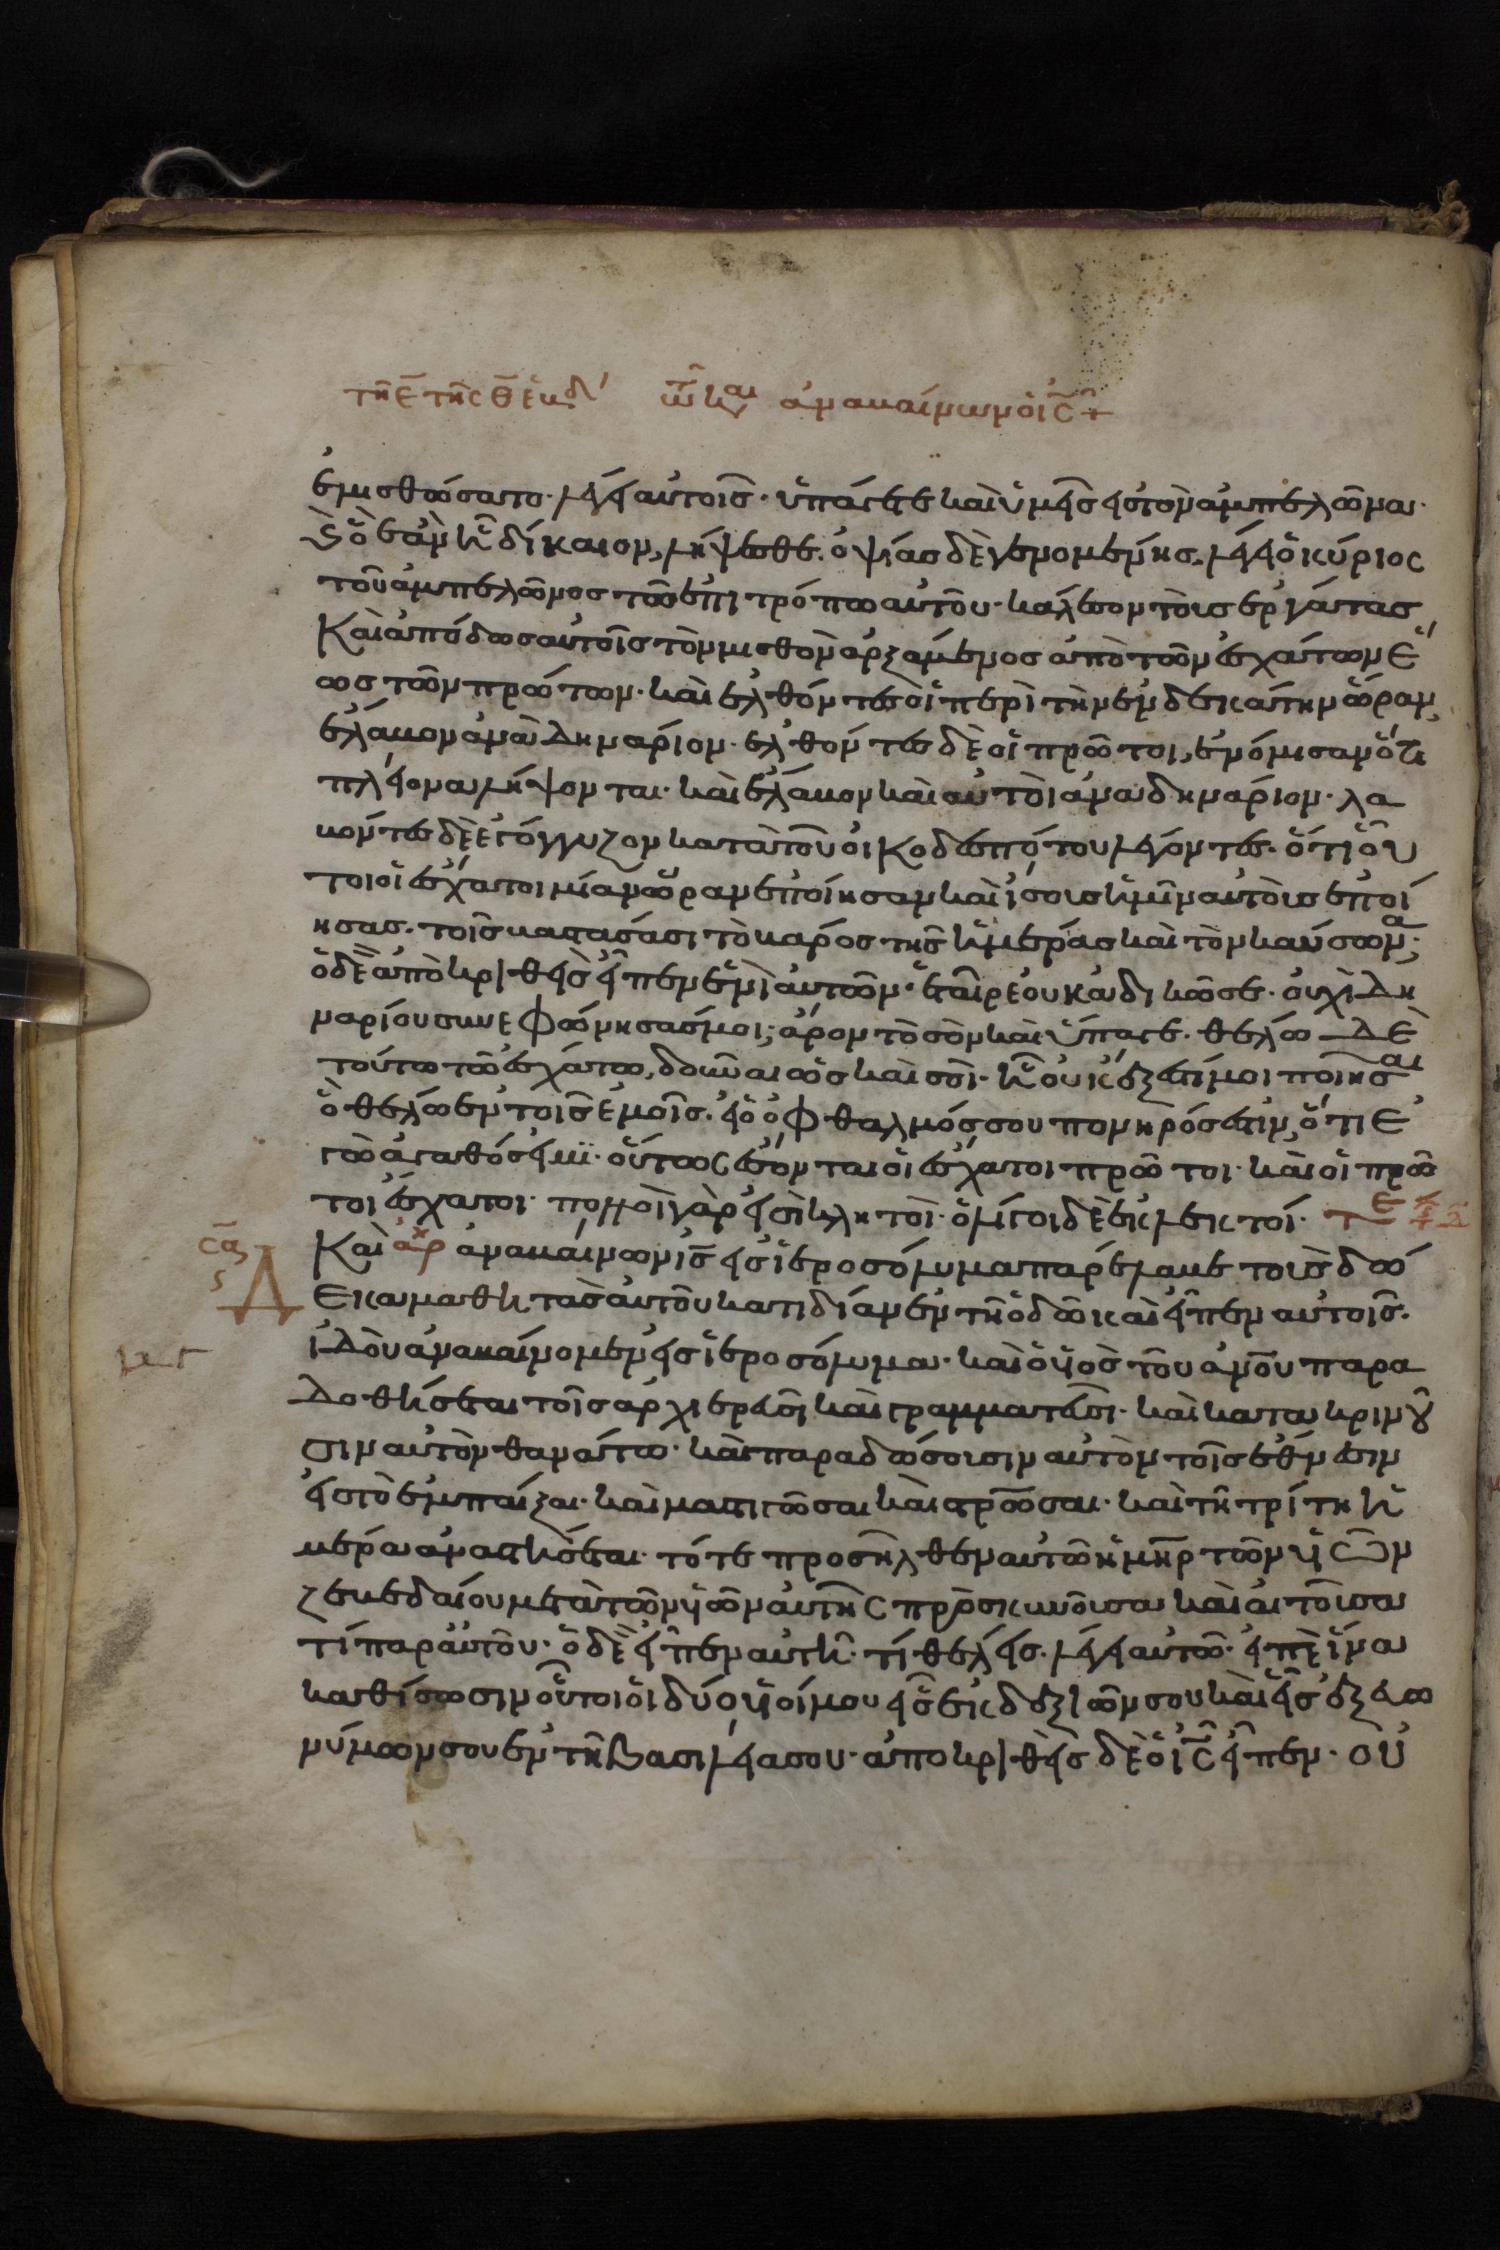 τῆ ε̅ τῆς θ̅ ἑβδ τῶ καιρ ἀναβαίνων ὁ ις̅
ἐμισθώσατο· λέγει αὐτοῖς· ὑπάγετε καὶ ὑμεῖς εἰς τὸν ἀμπελῶνα·
καὶ ὃ ἐὰν ῇ δίκαιον, λήψεσθε· ὀψίας δὲ γενομένης· λέγει ὁ κύριος
τοῦ ἀμπελῶνος τῶ ἐπιτρόπω αὐτοῦ· κάλεσον τοὺς ἐργάτας
Καὶ ἀπόδος αὐτοῖς τὸν μισθὸν ἀρξάμενος ἀπὸ τῶν ἐσχάτων ἕ
ως τῶν πρώτων· καὶ ἐλθόντες οἱ περὶ τὴν ἑνδεκάτην ὥραν,
ἔλαβον ἀνὰ δηνάριον· ἐλθόντες δὲ οἱ πρῶτοι, ἐνόμισαν ὅτι
πλείονα λήψονται· καὶ ἔλαβον καὶ αὐτοὶ ἀνὰ δηνάριον· λα
βόντες δὲ ἐγόγγυζον κατὰ τοῦ οἰκοδεσπότου λέγοντες· ὅτι οὗ
τοι οἱ ἔσχατοι μίαν ὥραν ἐποίησαν καὶ ἴσους ἡμῖν αὐτοὺς ἐποί
ησας· τοῖς βαστάσασι τὸ βάρος τῆς ἡμέρας καὶ τὸν καύσωνα·
ὁ δὲ ἀποκριθεὶς εἶπεν ἑνὶ αὐτῶν· ἑταῖρε οὐκ ἀδικῶ σε· οὐχὶ δη
ναρίου συνεφώνησάς μοι; ἆρον τὸ σὸν καὶ ὕπαγε· θέλω δὲ
τούτω τῶ ἐσχάτω, δοῦναι ὡς καὶ σοί· ἢ οὐκ ἔξεστί μοι ποιῆσαι
ὃ θέλω ἐν τοῖς ἐμοῖς· εἰ ὁ ὀφθαλμός σου πονηρός ἐστιν, ὅτι ἐ
γὼ ἀγαθός εἰμϊ· οὕτως ἔσονται οἱ ἔσχατοι πρῶτοι· καὶ οἱ πρῶ
τοι ἔσχατοι· πολλοὶ γάρ εἰσὶ κλητοὶ· ὀλίγοι δὲ ἐκλεκτοί· τε
Καὶ ἀρχ ἀναβαίνων ις̅ εἰς ἱεροσόλυμα παρέλαβε τοὺς δώ
δεκα μαθητὰς αὐτοῦ κατιδίαν ἐν τῆ ὁδῶ καὶ εἶπεν αὐτοῖς·
ἰδοὺ ἀναβαίνομεν εἰς ἱεροσόλυμα· καὶ ὁ υἱὸς τοῦ ἀνου παρα
δοθήσεται τοῖς ἀρχιερεῦσι καὶ γραμματεῦσι· καὶ κατακρινοῦ
σιν αὐτὸν θανάτω· καὶ παραδώσουσιν αὐτὸν τοῖς ἔθνεσιν
εἰς τὸ ἐμπαίξαι· καὶ μαστιγῶσαι καὶ σταυρῶσαι· καὶ τῆ τρίτη ἡ
μέρα ἀναστήσεται· τότε προσῆλθεν αὐτῶ ἡ μηρ τῶν υἱῶν
ζεβεδαίου μετὰ τῶν υἱῶν αὐτῆς προσκυνοῦσα καὶ αἰτοῦσα
τί παραυτοῦ· ὁ δὲ εἶπεν αὐτῆ· τί θέλεις· λέγει αὐτῶ· εἰπὲ ἵνα
καθίσωσιν οὗτοι οἱ δύο υἱοί μου εἷς ἐκ δεξιῶν σου καὶ εἷς ἐξ εὐω
νύμων σου ἐν τῆ βασιλεία σου· ἀποκριθεὶς δὲ ὁ ις̅ εἶπεν· οὐ